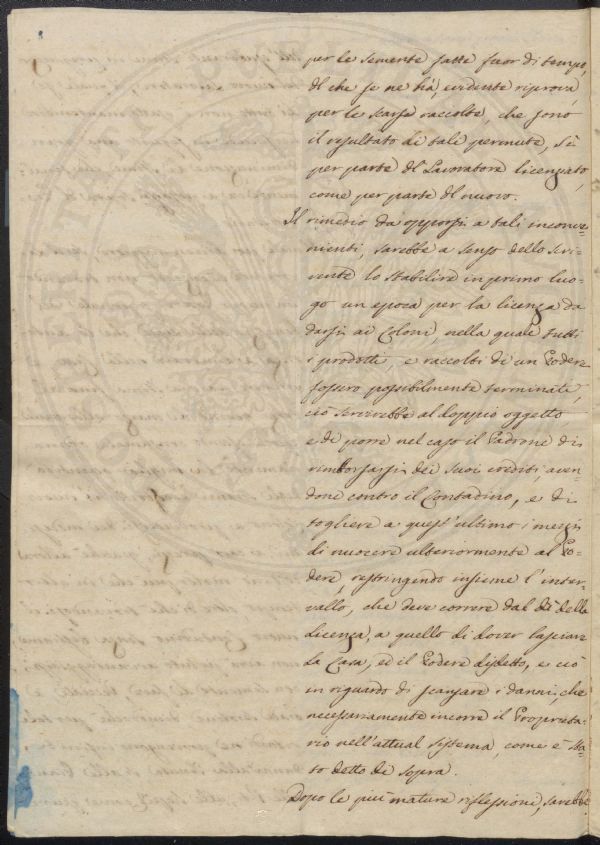 per le semente fatte fuor di tempo,
Il che se ne hà, evidente riprova,
per le scarse raccolte, che sono
il resultato di tali permute, sì
per parte dl Lavoratore licenziato,
come per parte dl nuovo.
Il rimedio da opporsi a tali inconve=
nienti, sarebbe a senso dello Scri=
vente lo stabilire in primo luo=
go un epoca per la licenza da
darsi ai Coloni, nella quale tutti
i prodotti, e raccolti di un Podere
fossero possibilmente terminati,
ciò servirebbe al doppio oggetto
e di porre nel caso il Padrone di
rimborsarsi dei suoi crediti, aven=
done contro il Contadino, e di
togliere a quest'ultimo i mezzi
di nuocere ulteriormente al Po=
dere, restringendo insieme l'inter=
vallo, che deve correre dal dì della
licenza, a quello di dover lasciare
la Casa, ed il Podere disdetto, e ciò
in riguardo di scansare i danni, che
necessariamente incorre il Proprieta=
rio nell'attual sistema, come è sta=
to detto di sopra.
Dopo le più mature riflessioni, sarebbe